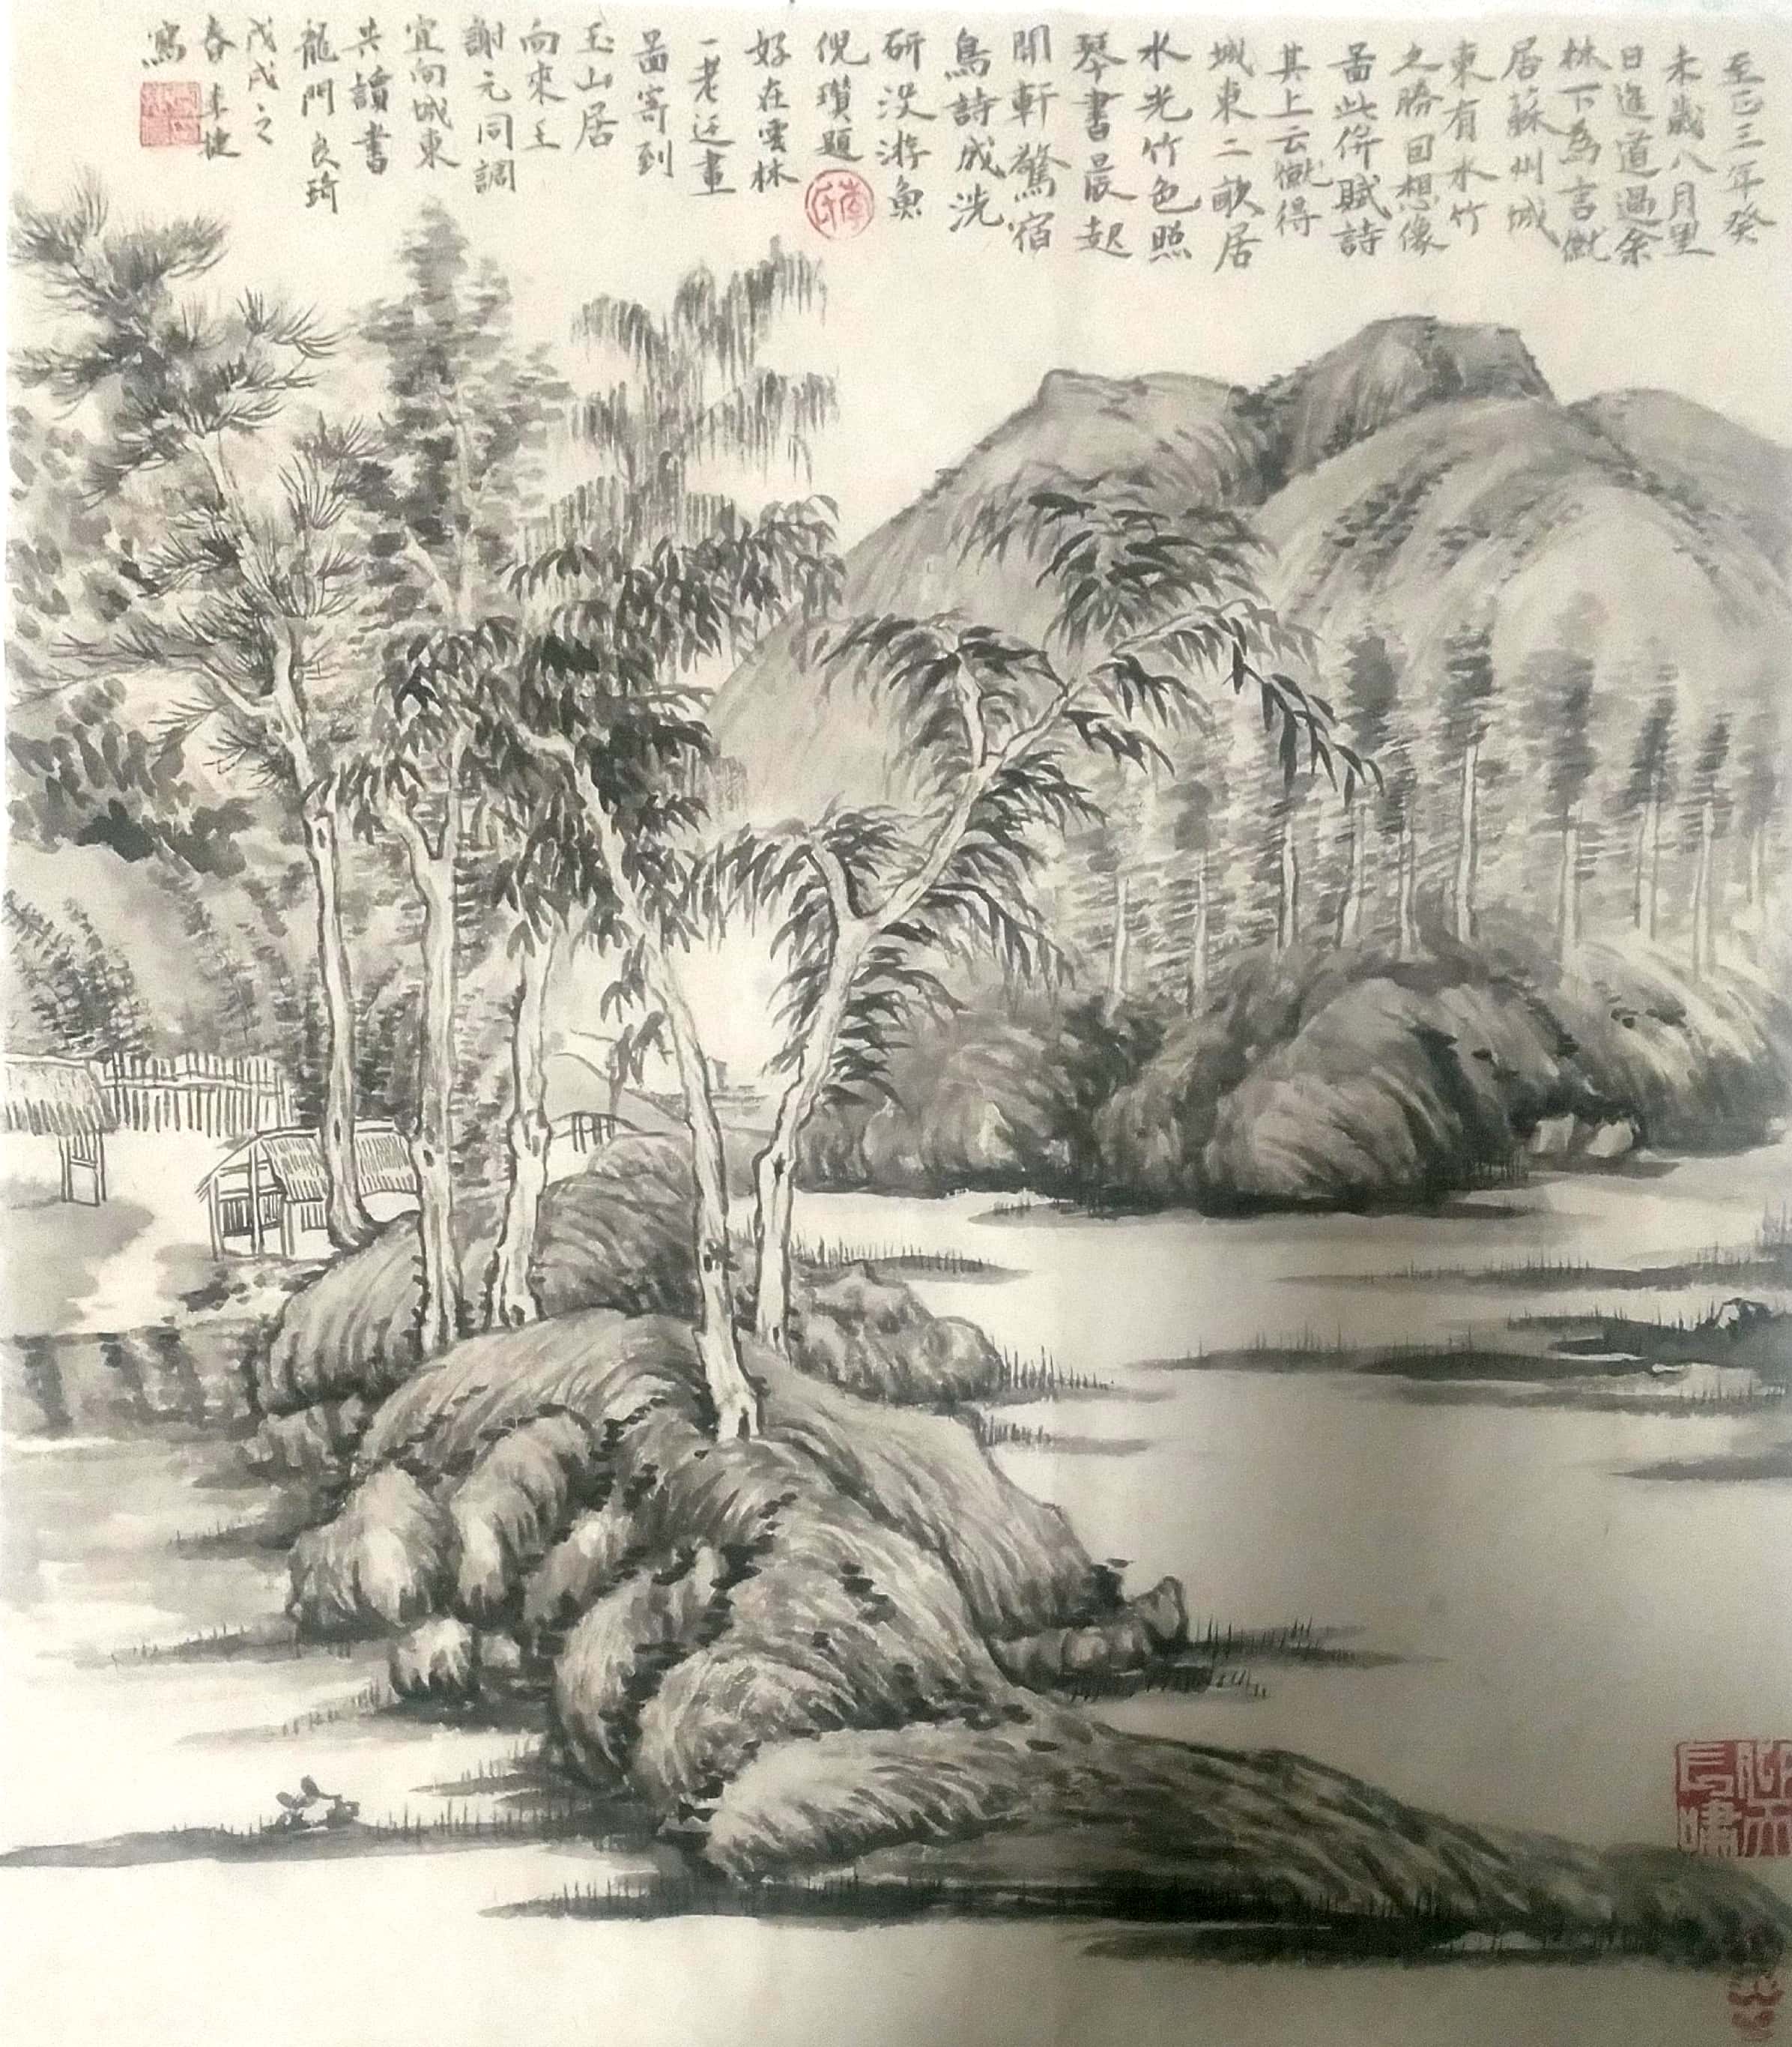 至正三年癸
未歲八月望
日進道過余
林下為言僦
居蘇州城
東有水竹
之勝因想像
圖此併賦詩
其上云僦得
城東二畝居
水光竹色照
琴書晨起
開軒驚宿
鳥詩成洗
研沒游魚
倪瓚題
好在雲林
一老迂畫
圖寄到
玉山居
向來王
謝元同調
宜向城東
共讀書
龍門良琦
戊戌之
春
寫